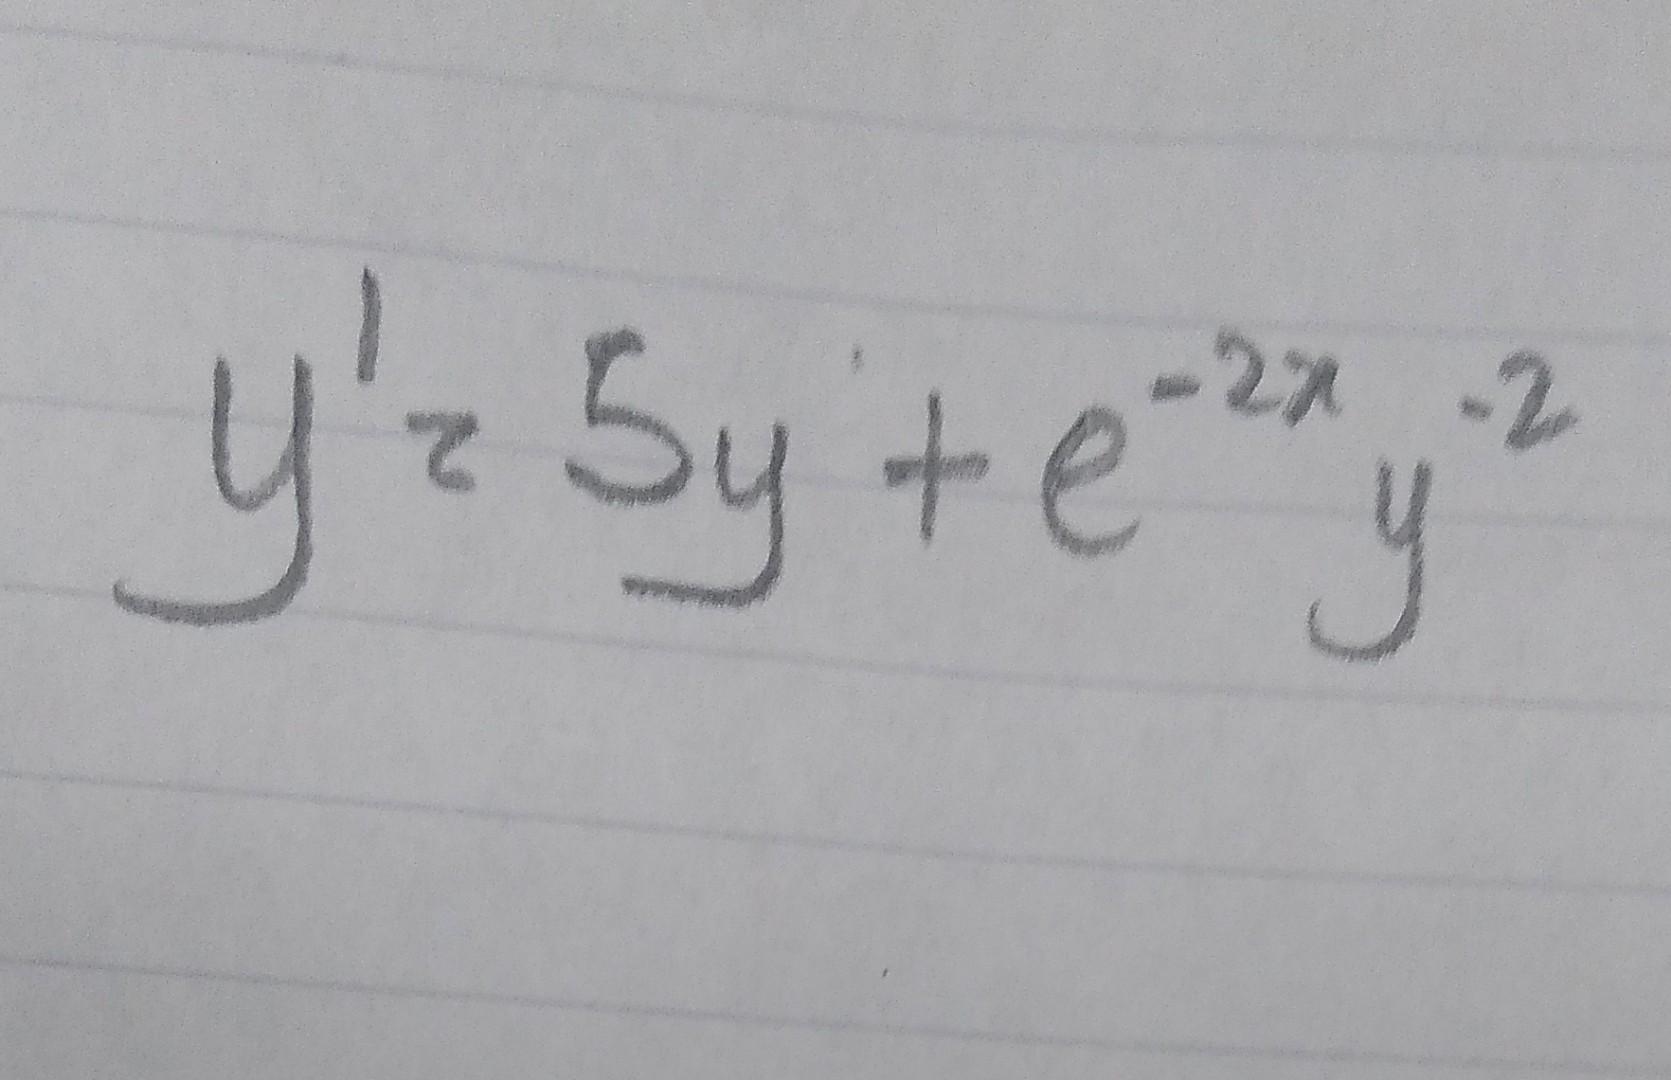 y' = 5y + e^{-2x} y^{-2}